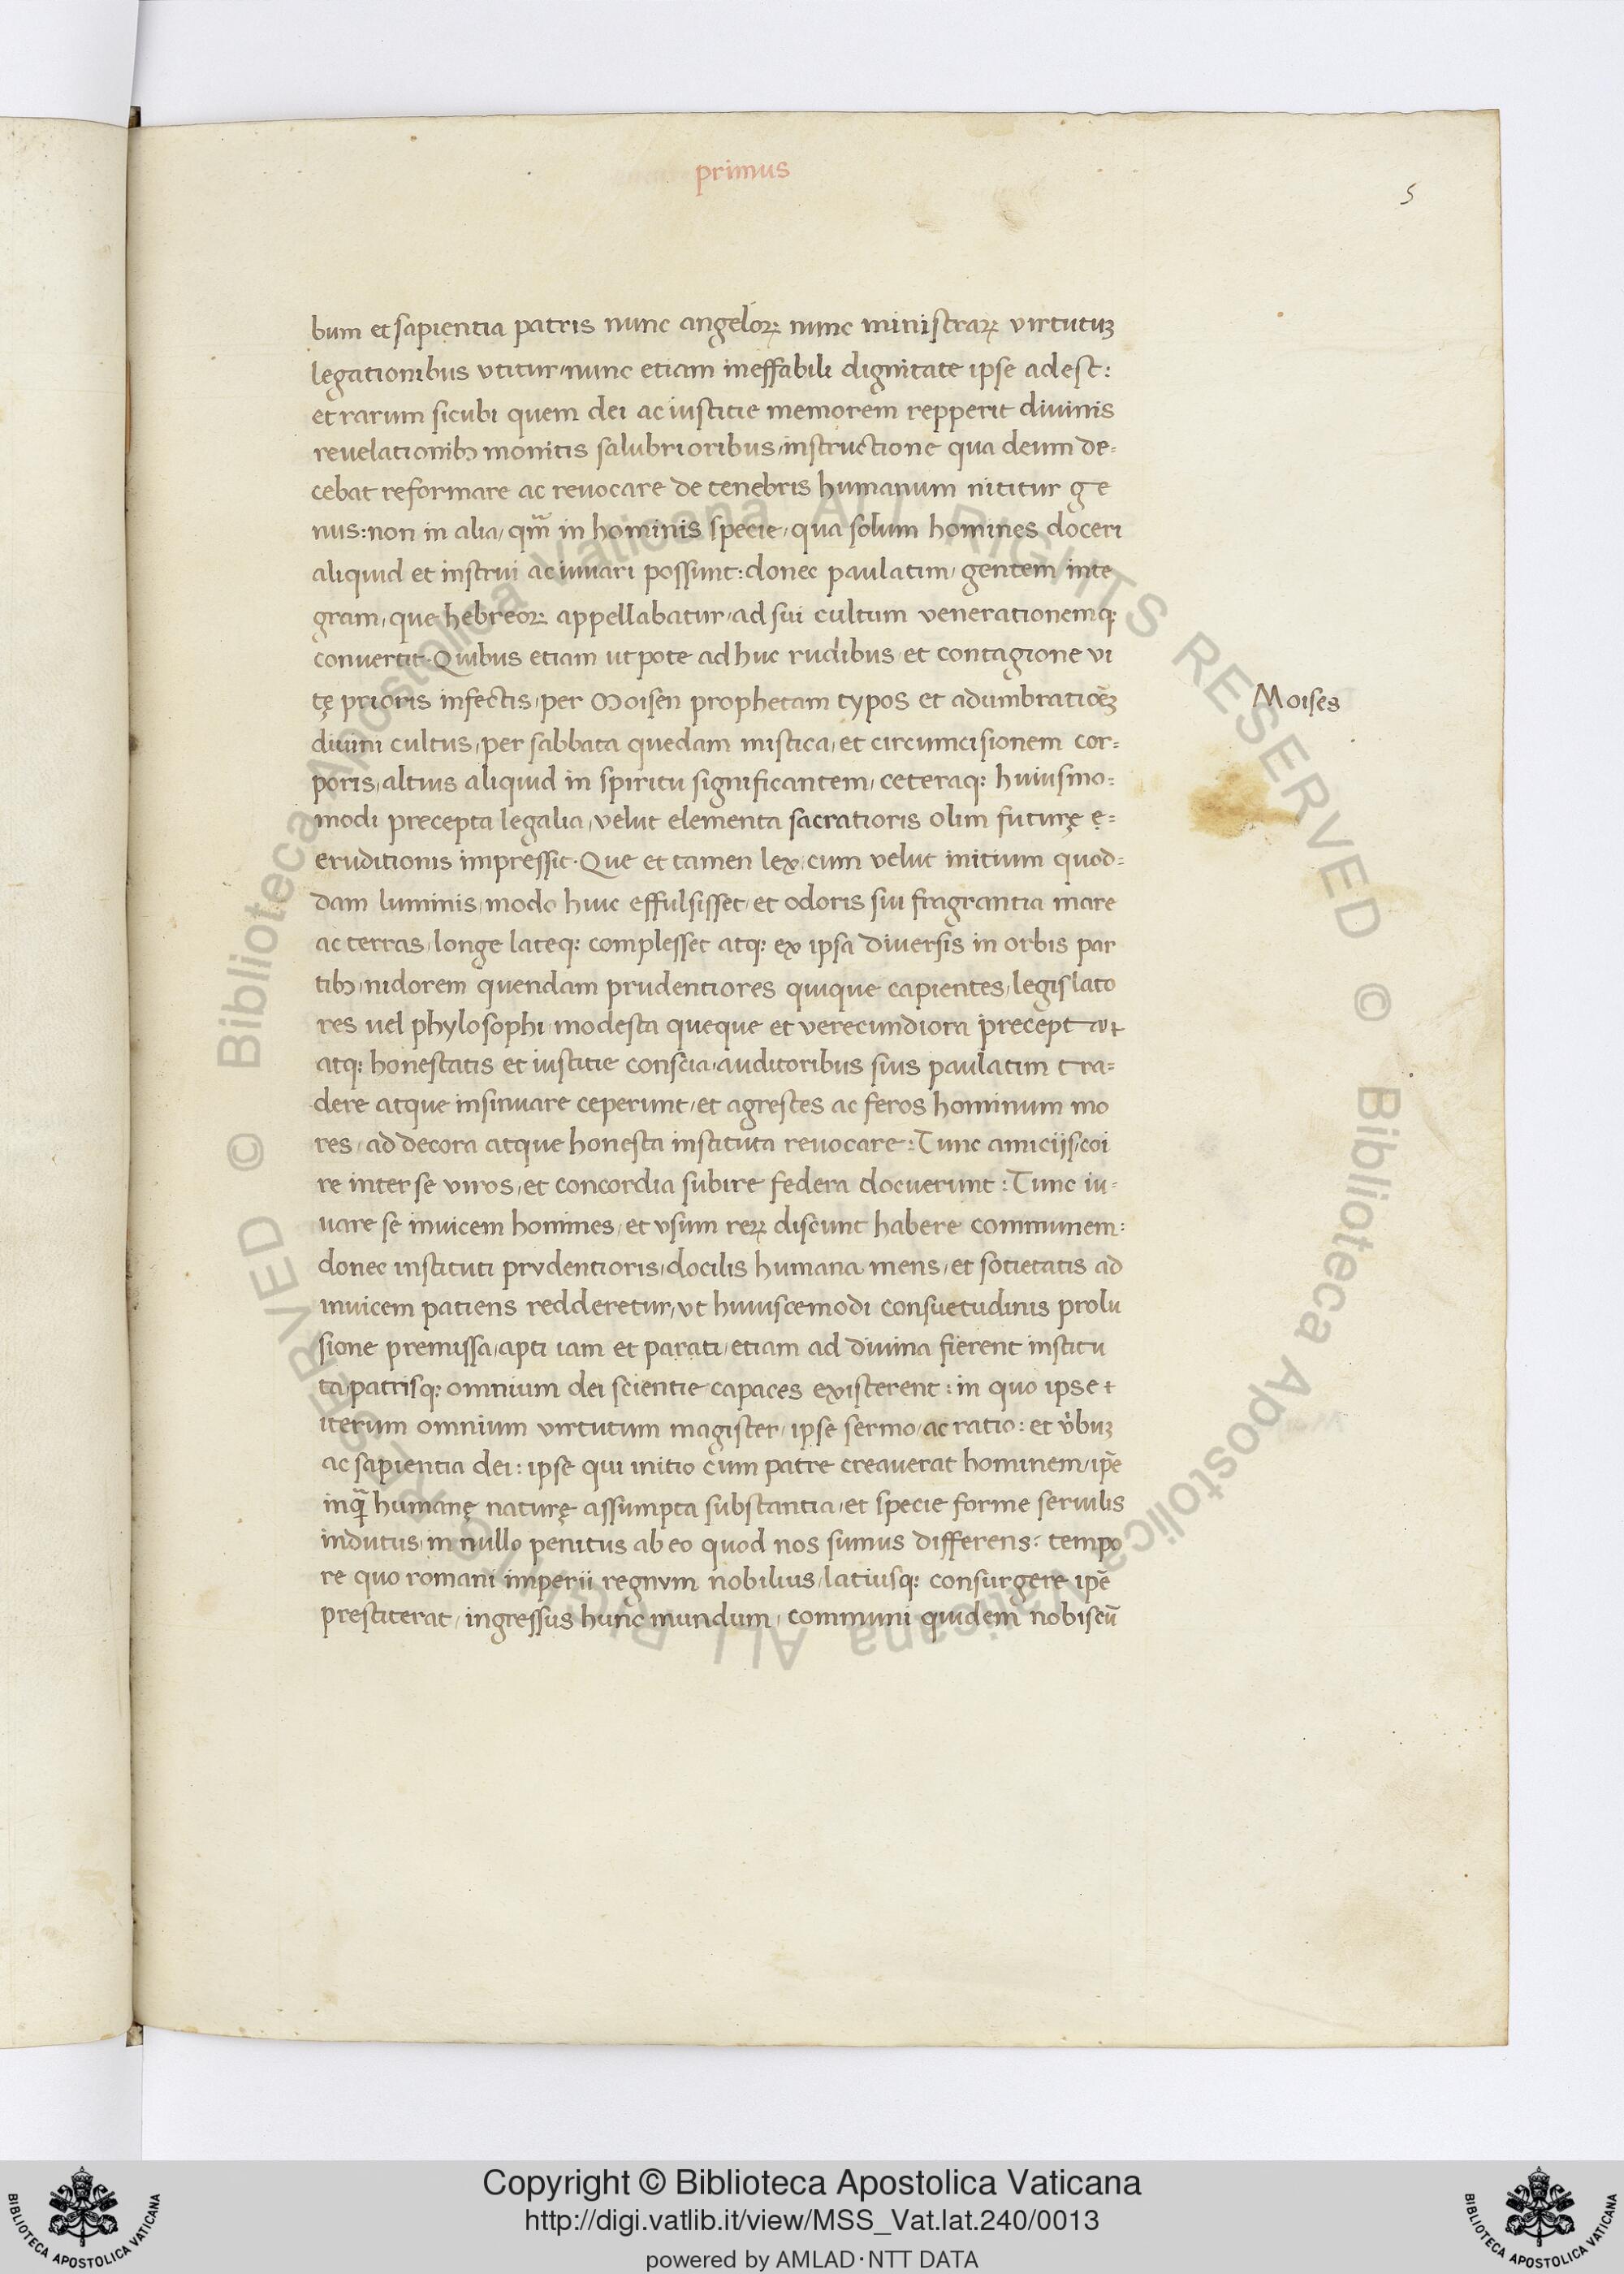 primus
5
bum et sapientia patris nunc angeloꝝ nunc ministraꝝ virtutuꝫ
legationibus vtitur, nunc etiam ineffabili dignitate ipse adest:
et rarum sicubi quem dei ac iustitie memorem repperit diuinis
reuelationibꝫ monitis salubrioribus, instructione qua deum de=
cebat reformare ac reuocare de tenebris humanum nititur ge
nus: non in alia, qm̃ in hominis specie, qua solum homines doceri
aliquid et instrui ac iuuari possunt: donec paulatim, gentem inte
gram, que hebreoꝝ appellabatur, ad sui cultum venerationemq:
conuertit. Quibus etiam ut pote ad huc rudibus et contagione vi
tę prioris infectis, per Moisen prophetam typos et adumbratiõeꝫ
diuini cultus, per sabbata quedam mistica, et circumcisionem cor=
poris, altius aliquid in spiritu significantem, ceteraq: huiusmo=
modi precepta legalia, velut elementa sacratioris olim futurę e=
eruditionis impressit. Que et tamen lex, cum velut initium quod=
dam luminis, modo huic effulsisset, et odoris sui fragrantia mare
ac terras, longe lateq: complesset atq: ex ipsa diuersis in orbis par
tibꝫ, nidorem quendam prudentiores quique capientes, legislato
res uel phylosophi, modesta queque et verecundiora precepta
atq: honestatis et iustitie conscia, auditoribus suis paulatim tra=
dere atque insinuare ceperunt, et agrestes ac feros hominum mo
res, ad decora atque honesta instituta reuocare: Tunc amiciis, coi
re inter se viros, et concordia subire federa docuerunt: Tunc iu-
uare se inuicem homines, et vsum reꝝ discunt habere communem:
donec instituti prvdentioris, docilis humana mens, et sotietatis ad
inuicem patiens redderetur, vt huiuscemodi consuetudinis prolu
sione premissa, apti iam et parati, etiam ad diuina fierent institu
ta, patrisq: omnium dei scientie capaces existerent: in quo ipse
iterum omnium virtutum magister, ipse sermo, ac ratio: et v̉buꝫ
ac sapientia dei: ipse qui initio cum patre creauerat hominem, ip̃e
inqᷓ humanę naturę assumpta substantia, et specie forme seruilis
indutus, in nullo penitus ab eo quod nos sumus differens: tempo
re quo romani imperii regnvm nobilius, latiusq: consurgere ip̃e
prestiterat, ingressus hunc mundum, communi quidem nobiscũ
Moises
© Biblioteca Apostolica Vaticana ALL RIGHTS RESERVED © Biblioteca Apostolica Vaticana ALL RIGHTS RESERVED
Copyright © Biblioteca Apostolica Vaticana
http://digi.vatlib.it/view/MSS_Vat.lat.240/0013
powered by AMLAD·NTT DATA
BIBLIOTECA APOSTOLICA VATICANA
BIBLIOTECA APOSTOLICA VATICANA